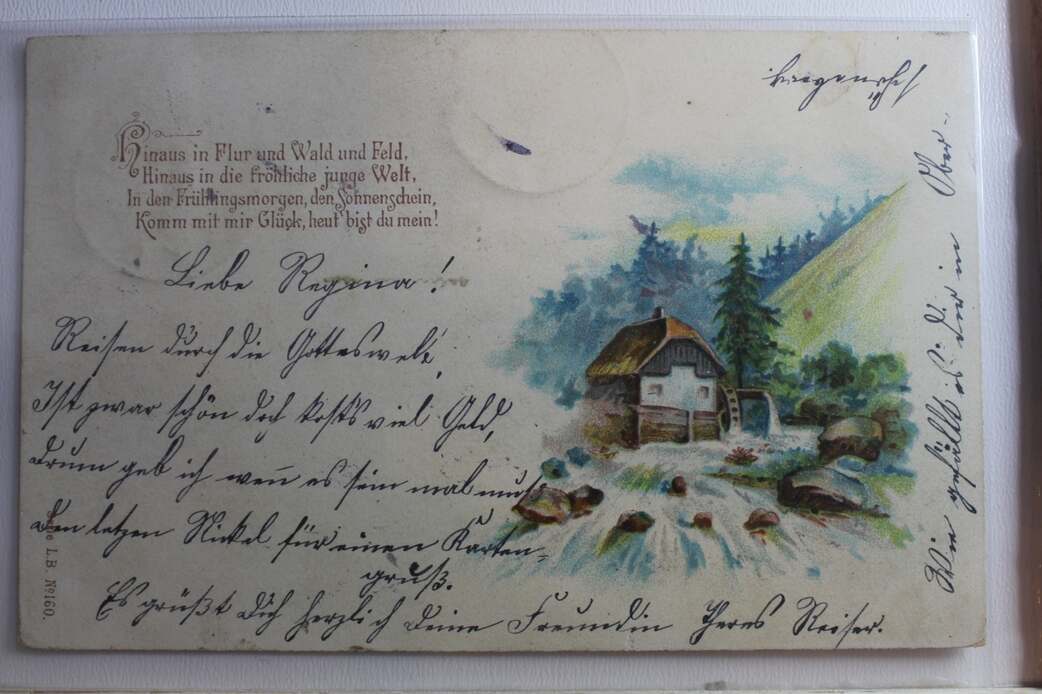 Hinaus in Flur und Wald und Feld,
Hinaus in die fröhliche junge Welt,
In den Frühlingsmorgen, den Sonnenschein,
Komm mit mir Glück, heut bist du mein!
Liebe Regina!
Reisen durch die Gotteswelt,
Ist zwar schön doch kosts viel Geld,
Drum geb ich weñ es sein mal muß
Den letzen Nickel für einen Karten-
gruß.
Es grüßt Dich herzlich Deine Freundin Theres Reiser.
Wie gefällt es dir in Ober-
Serie L.B. No 160.